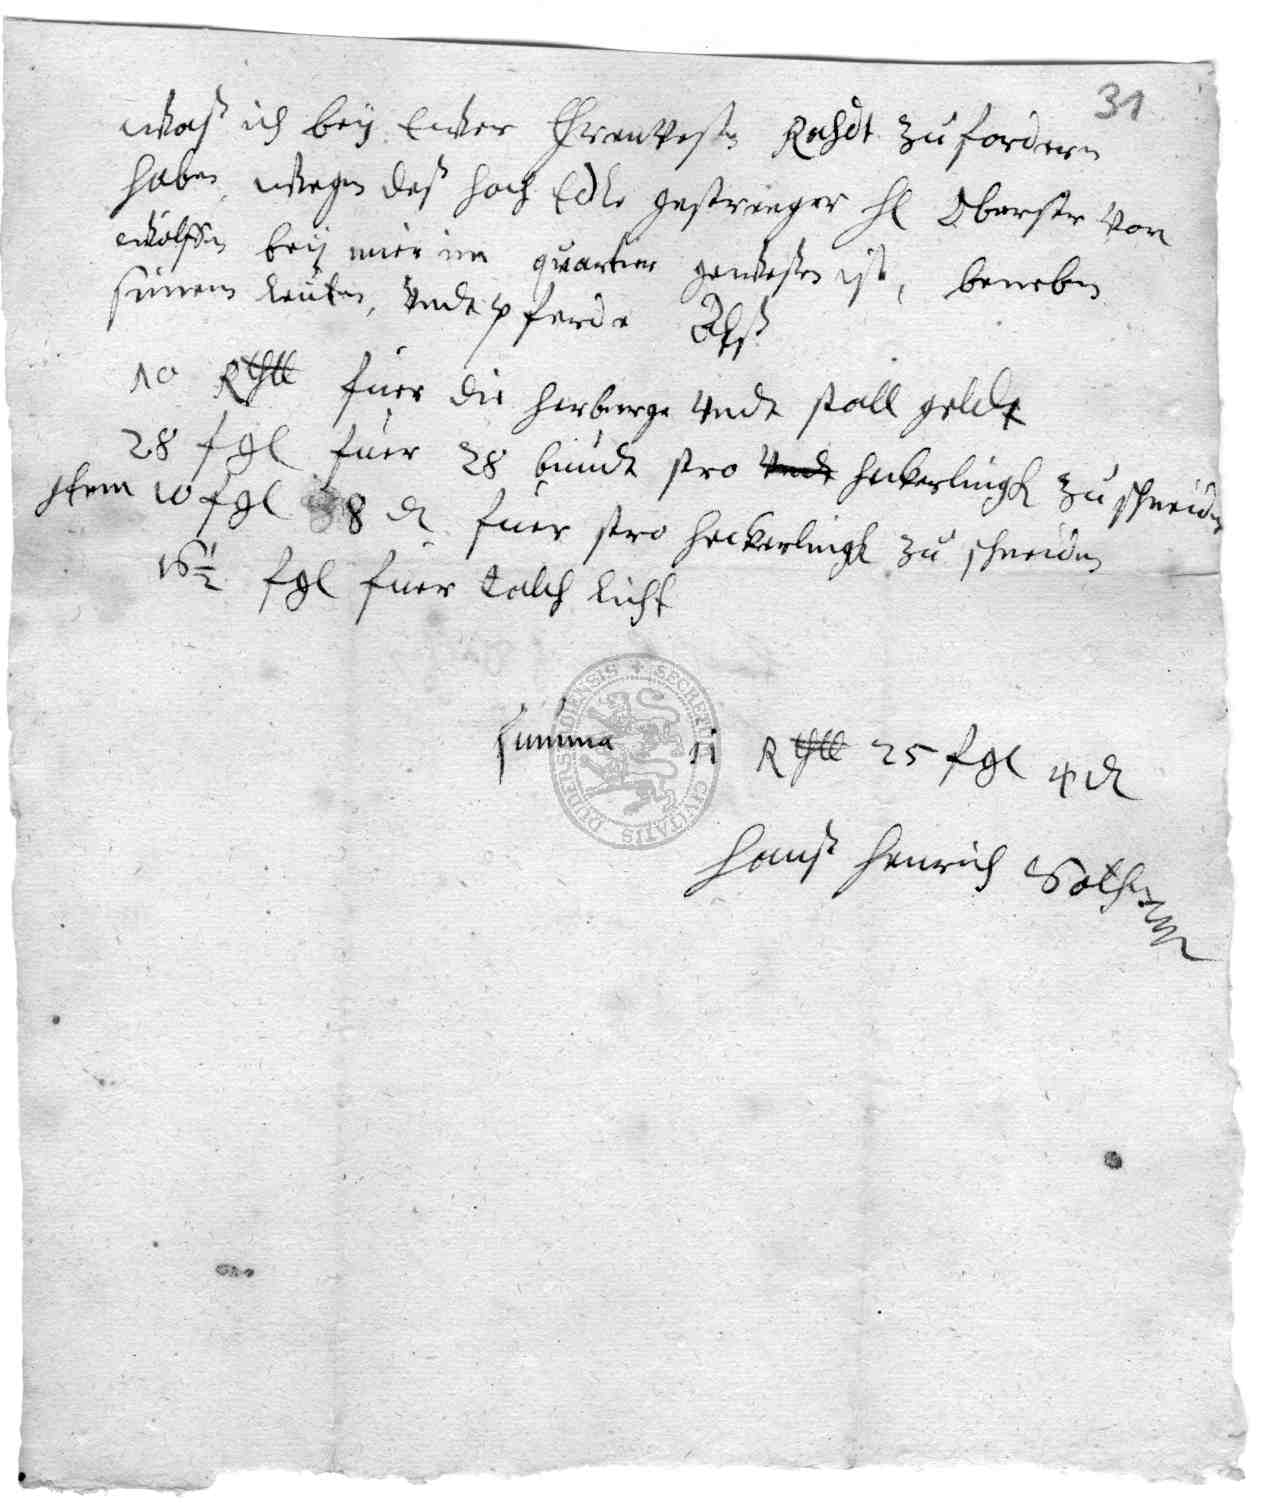 31
waß ich beÿ Ewer Ehrenvesten Rahdt zu fordern
haben, wegen deß hoch Edle gestrenger hl Oberster Von
wolffen beÿ mier im quartier gewesen ist, beneben
seinen leuten, Undt pferde Alß
10 Rthll fuer die herberge Undt stall geldt
28 fgl fuer 28 bundt stro Undt heckerlingk zu schneiden
Item 10 fgl 8 d fuer stro heckerlingk zu schneiden
16½ fgl fuer talch licht
Summa 11 Rthll 25 fgl 4 d
Hanß Henrich
SECRETUM CIVITATIS DUDERSTADENSIS